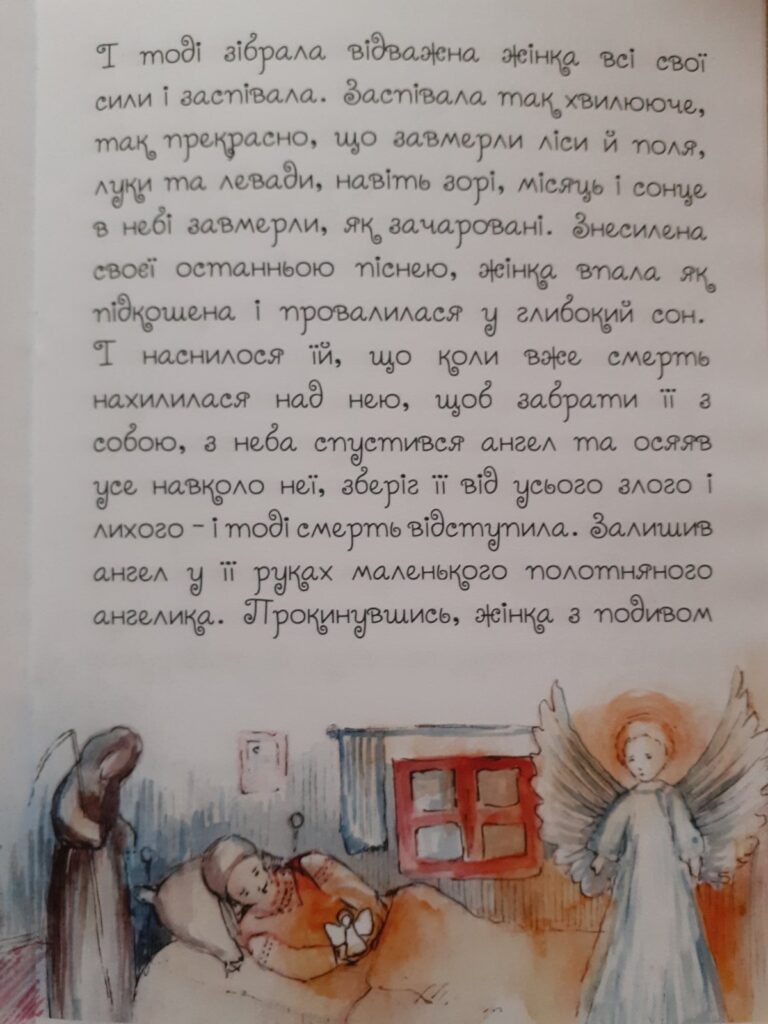 І тоді зібрала відважна жінка всі свої
сили і заспівала. Заспівала так хвилююче,
так прекрасно, що завмерли ліси й поля,
луки та левади, навіть зорі, місяць і сонце
в небі завмерли, як зачаровані. Знесилена
своєї останньою піснею, жінка впала як
підкошена і провалилася у глибокий сон.
І наснилося їй, що коли вже смерть
нахилилася над нею, щоб забрати її з
собою, з неба спустився ангел та осяяв
усе навколо неї, зберіг її від усього злого і
лихого - і тоді смерть відступила. Залишив
ангел у її руках маленького полотняного
ангелика. Прокинувшись, жінка з подивом